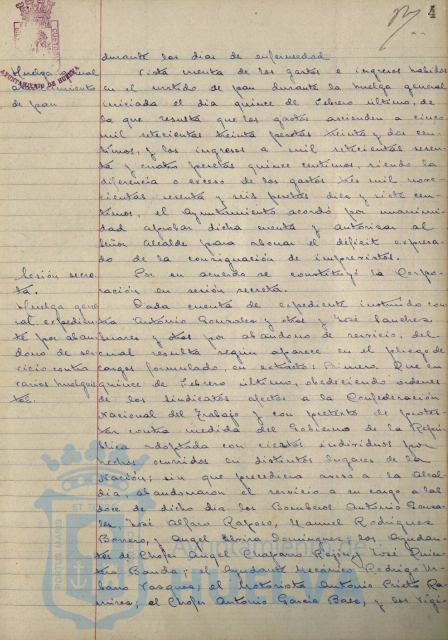 4
durante los dias de enfermedad
Huelga general
abastecimiento
de pan
Vista cuenta de los gastos e ingresos habidos
en el surtido de pan durante la huelga general
iniciada el dia quince de Febrero último, de
la que resulta que los gastos ascienden a cinco
mil setecientas treinta pesetas treinta y dos cen-
timos, y los ingresos a mil setecientas sesen-
ta y cuatro pesetas quince centimos, siendo la
diferencia o exceso de los gastos tres mil nove-
cientas sesenta y seis pesetas diez y siete cen-
timos, el Ayuntamiento acordó por unanimi-
dad aprobar dicha cuenta y autorizar al
Señor Alcalde para abonar el déficit expresa-
do de la consignación de imprevistos.
Sesión secre-
ta.
Por su acuerdo se constituyó la Corpo-
ración en sesión secreta.
Huelga gene-
ral expedien-
te por aban-
dono de ser-
vicio contra
varios huelguis-
tas.
Dada cuenta de expediente instruido con-
tra Antonio Gonzalez y otros y José Sanchez
Linares y otros por abandono de servicio, del
cual resulta segun aparece en el pliego de
cargos formulado, en extracto: Primero. Que en
quince de Febrero último, obedeciendo ordenes
de los sindicatos afectos a la Confederación
Nacional del Trabajo y con pretexto de protes-
tar contra medida del Gobierno de la Repú-
blica adoptada con ciertos individuos por
hechos ocurridos en distintos lugares de la
Nación; sin que precediera aviso a la Alcal-
dia, abandonaron el servicio a su cargo a las
doce de dicho dia los Bomberos Antonio Gonza-
lez, José Alfaro Raposo, Manuel Rodriguez
Borrero, y Angel Elvira Dominguez; los Ayudan-
tes de Chofer Angel Chaparro Pepin y José Quin-
tero Banda; el Ayudante Mecánico Rodrigo Ur-
bano Vasquez; el Motorista Antonio Prieto Ra-
mirez; el Chofer Antonio Garcia Baez, y los Vigi-
AYUNTAMIENTO DE HUELVA